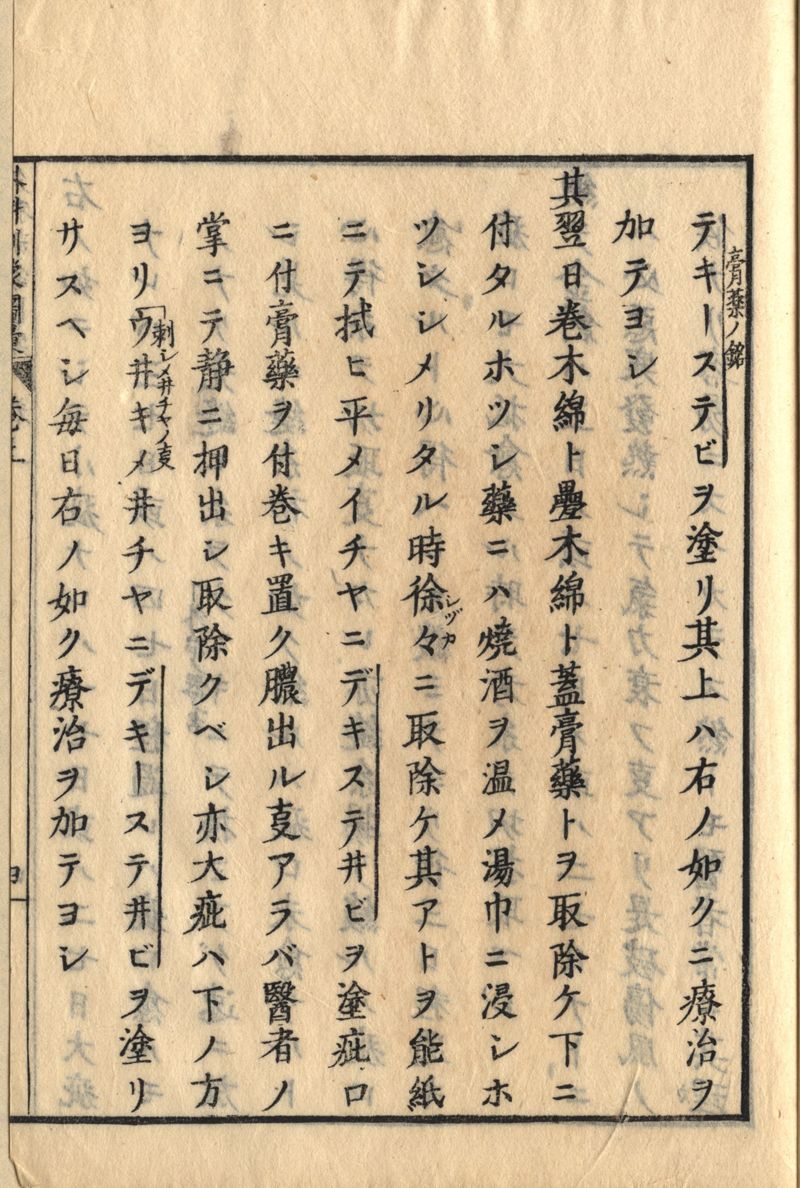 テキーステビヲ塗リ其上ハ右ノ如クニ療治ヲ
膏藥ノ銘
加テヨシ
其翌日巻木綿ト疊木綿ト蓋膏藥トヲ取除ケ下ニ
付タルホツシ藥ニハ燒酒ヲ温メ湯巾ニ浸シホ
ツシシメリタル時徐々ニ取除ケ其アトヲ能紙
シヅカ
ニテ拭ヒ平メイチヤニデキステ井ビヲ塗疵口
ニ付膏藥ヲ付巻キ置ク膿出ル叓アラバ醫者ノ
掌ニテ静ニ押出シ取除クベシ亦大疵ハ下ノ方
ヨリウ井キメ井チヤニデキーステ井ビヲ塗リ
刺シメ井チヤノ叓
サスヘシ毎日右ノ如ク療治ヲ加テヨシ